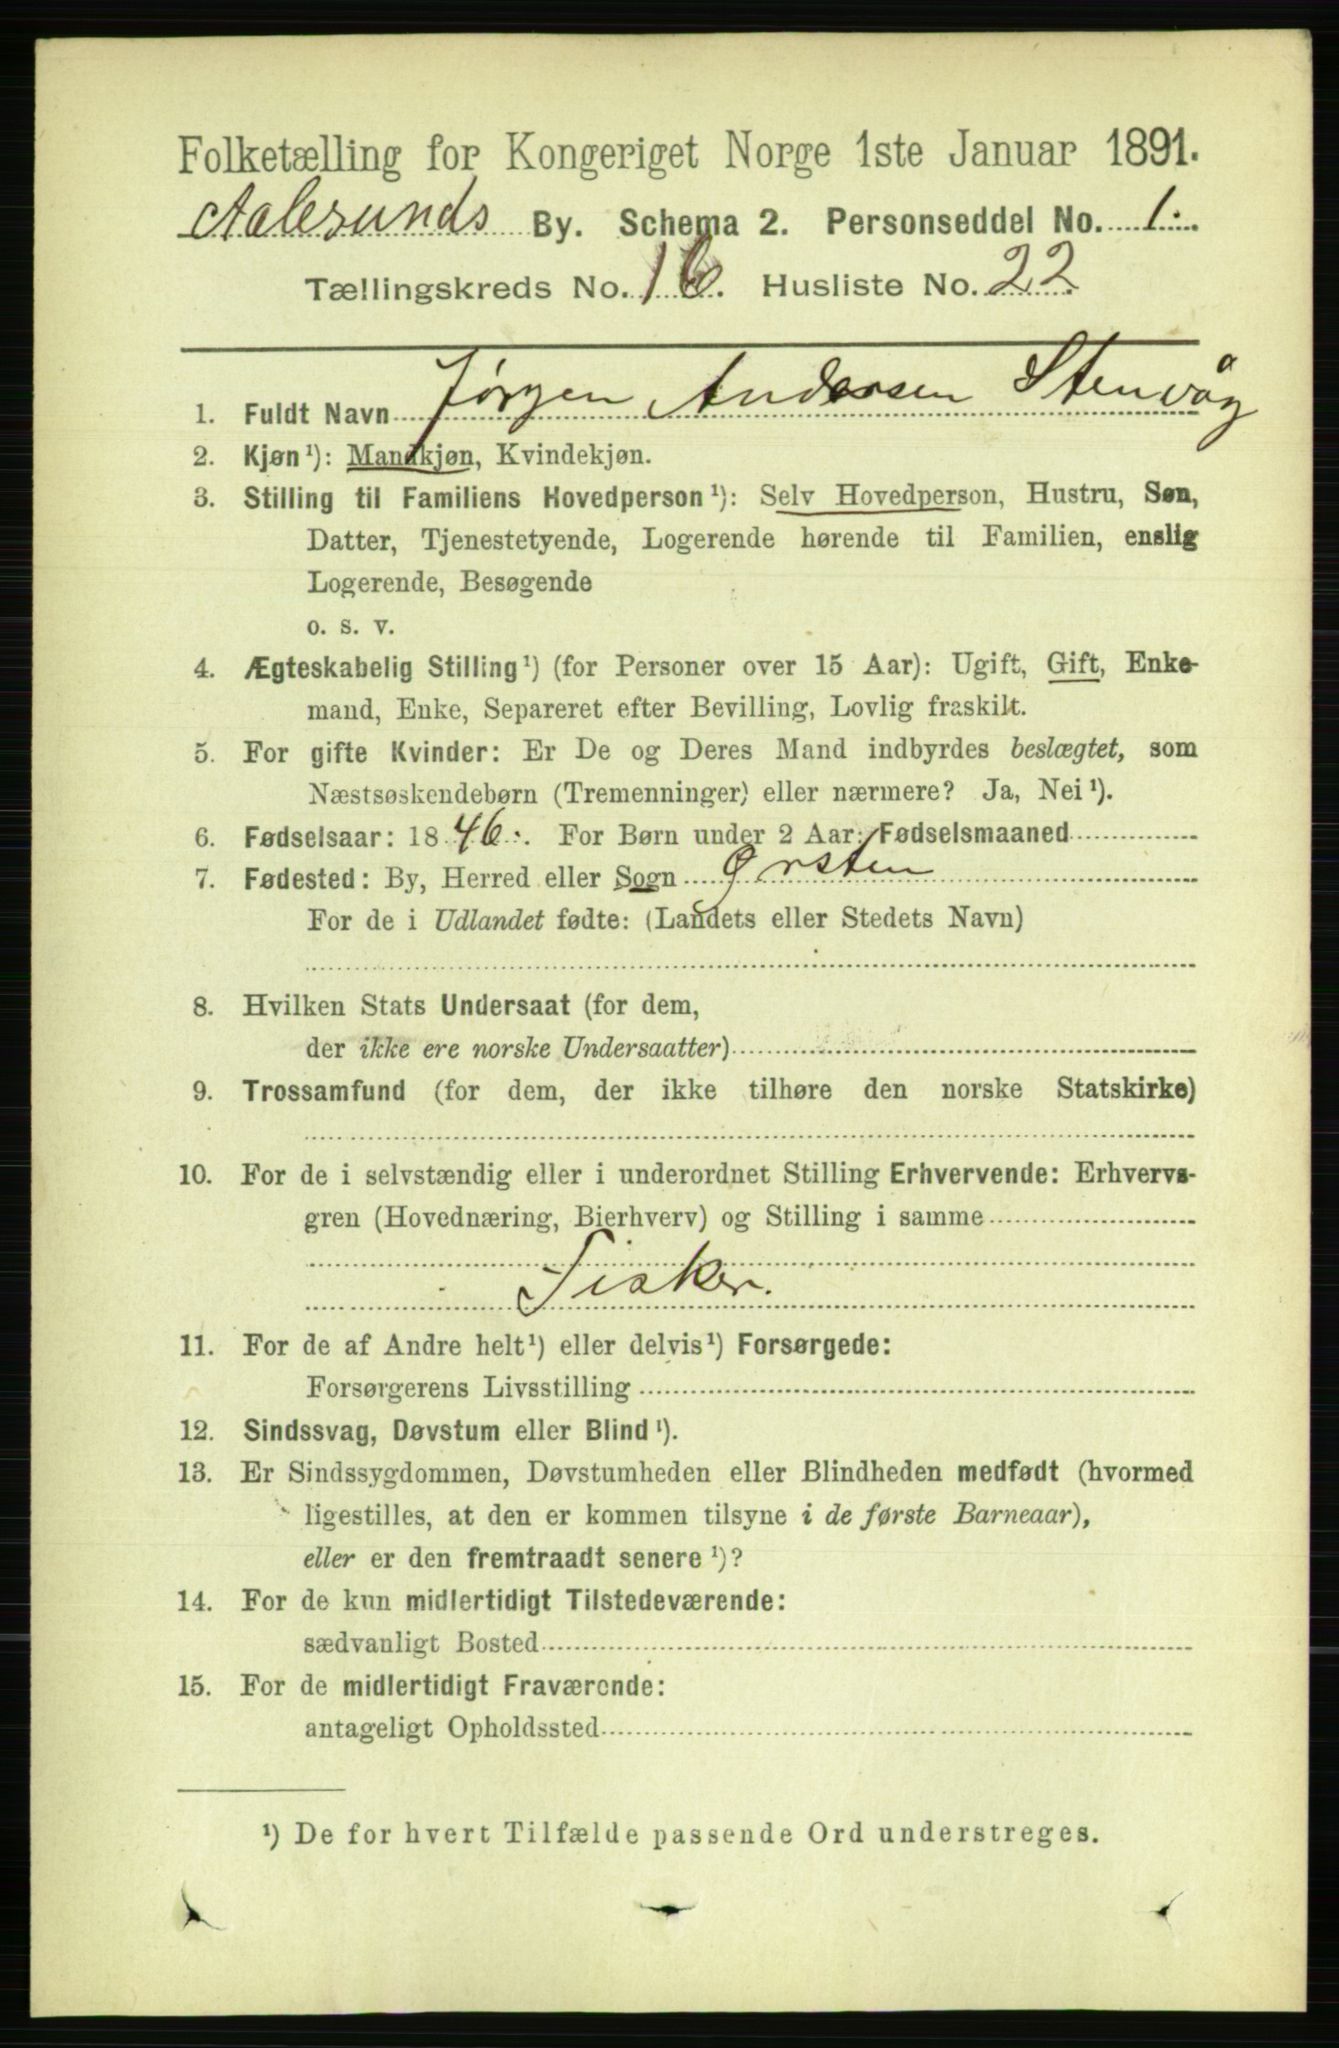 Folketælling for Kongeriget Norge 1ste Januar 1891.
Aalesunds By. Schema 2. Personseddel No. 1.
Tællingskreds No. 16. Husliste No. 22
1. Fuldt Navn Jørgen Andersen Stenvåg
2. Kjøn¹): Mandkjøn, Kvindekjøn.
3. Stilling til Familiens Hovedperson¹): Selv Hovedperson, Hustru, Søn,
Datter, Tjenestetyende, Logerende hørende til Familien, enslig
Logerende, Besøgende
o. s. v.
4. Ægteskabelig Stilling¹) (for Personer over 15 Aar): Ugift, Gift, Enke-
mand, Enke, Separeret efter Bevilling, Lovlig fraskilt.
5. For gifte Kvinder: Er De og Deres Mand indbyrdes beslægtet, som
Næstsøskendebørn (Tremenninger) eller nærmere? Ja, Nei¹).
6. Fødselsaar: 1846. For Børn under 2 Aar: Fødselsmaaned
7. Fødested: By, Herred eller Sogn Ørsten
For de i Udlandet fødte: (Landets eller Stedets Navn)
8. Hvilken Stats Undersaat (for dem,
der ikke ere norske Undersaatter)
9. Trossamfund (for dem, der ikke tilhøre den norske Statskirke)
10. For de i selvstændig eller i underordnet Stilling Erhvervende: Erhvervs-
gren (Hovednæring, Bierhverv) og Stilling i samme
Fisker.
11. For de af Andre helt¹) eller delvis¹) Forsørgede:
Forsørgerens Livsstilling
12. Sindssvag, Døvstum eller Blind¹).
13. Er Sindssygdommen, Døvstumheden eller Blindheden medfødt (hvormed
ligestilles, at den er kommen tilsyne i de første Barneaar),
eller er den fremtraadt senere¹)?
14. For de kun midlertidigt Tilstedeværende:
sædvanligt Bosted
15. For de midlertidigt Fraværende:
antageligt Opholdssted
¹) De for hvert Tilfælde passende Ord understreges.